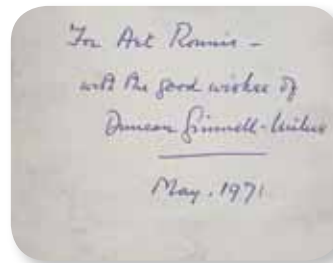 For Art Ronnie -
with the good wishes of
Duncan Grinnell-Milne
May. 1971